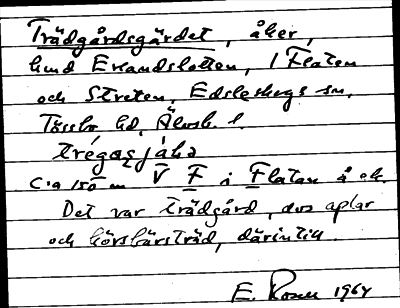 Trädgårdsgärdet, åker,
hmd Erlandslotten, 1 Flaten
och Streten, Edsleskogs sn,
Tössbo hd, Älvsb. l.
c:a 150 m V F i Flatan å ek.
Det var trädgård, dvs aplar
och körsbärsträd, därintill.
E. Rosen 1964